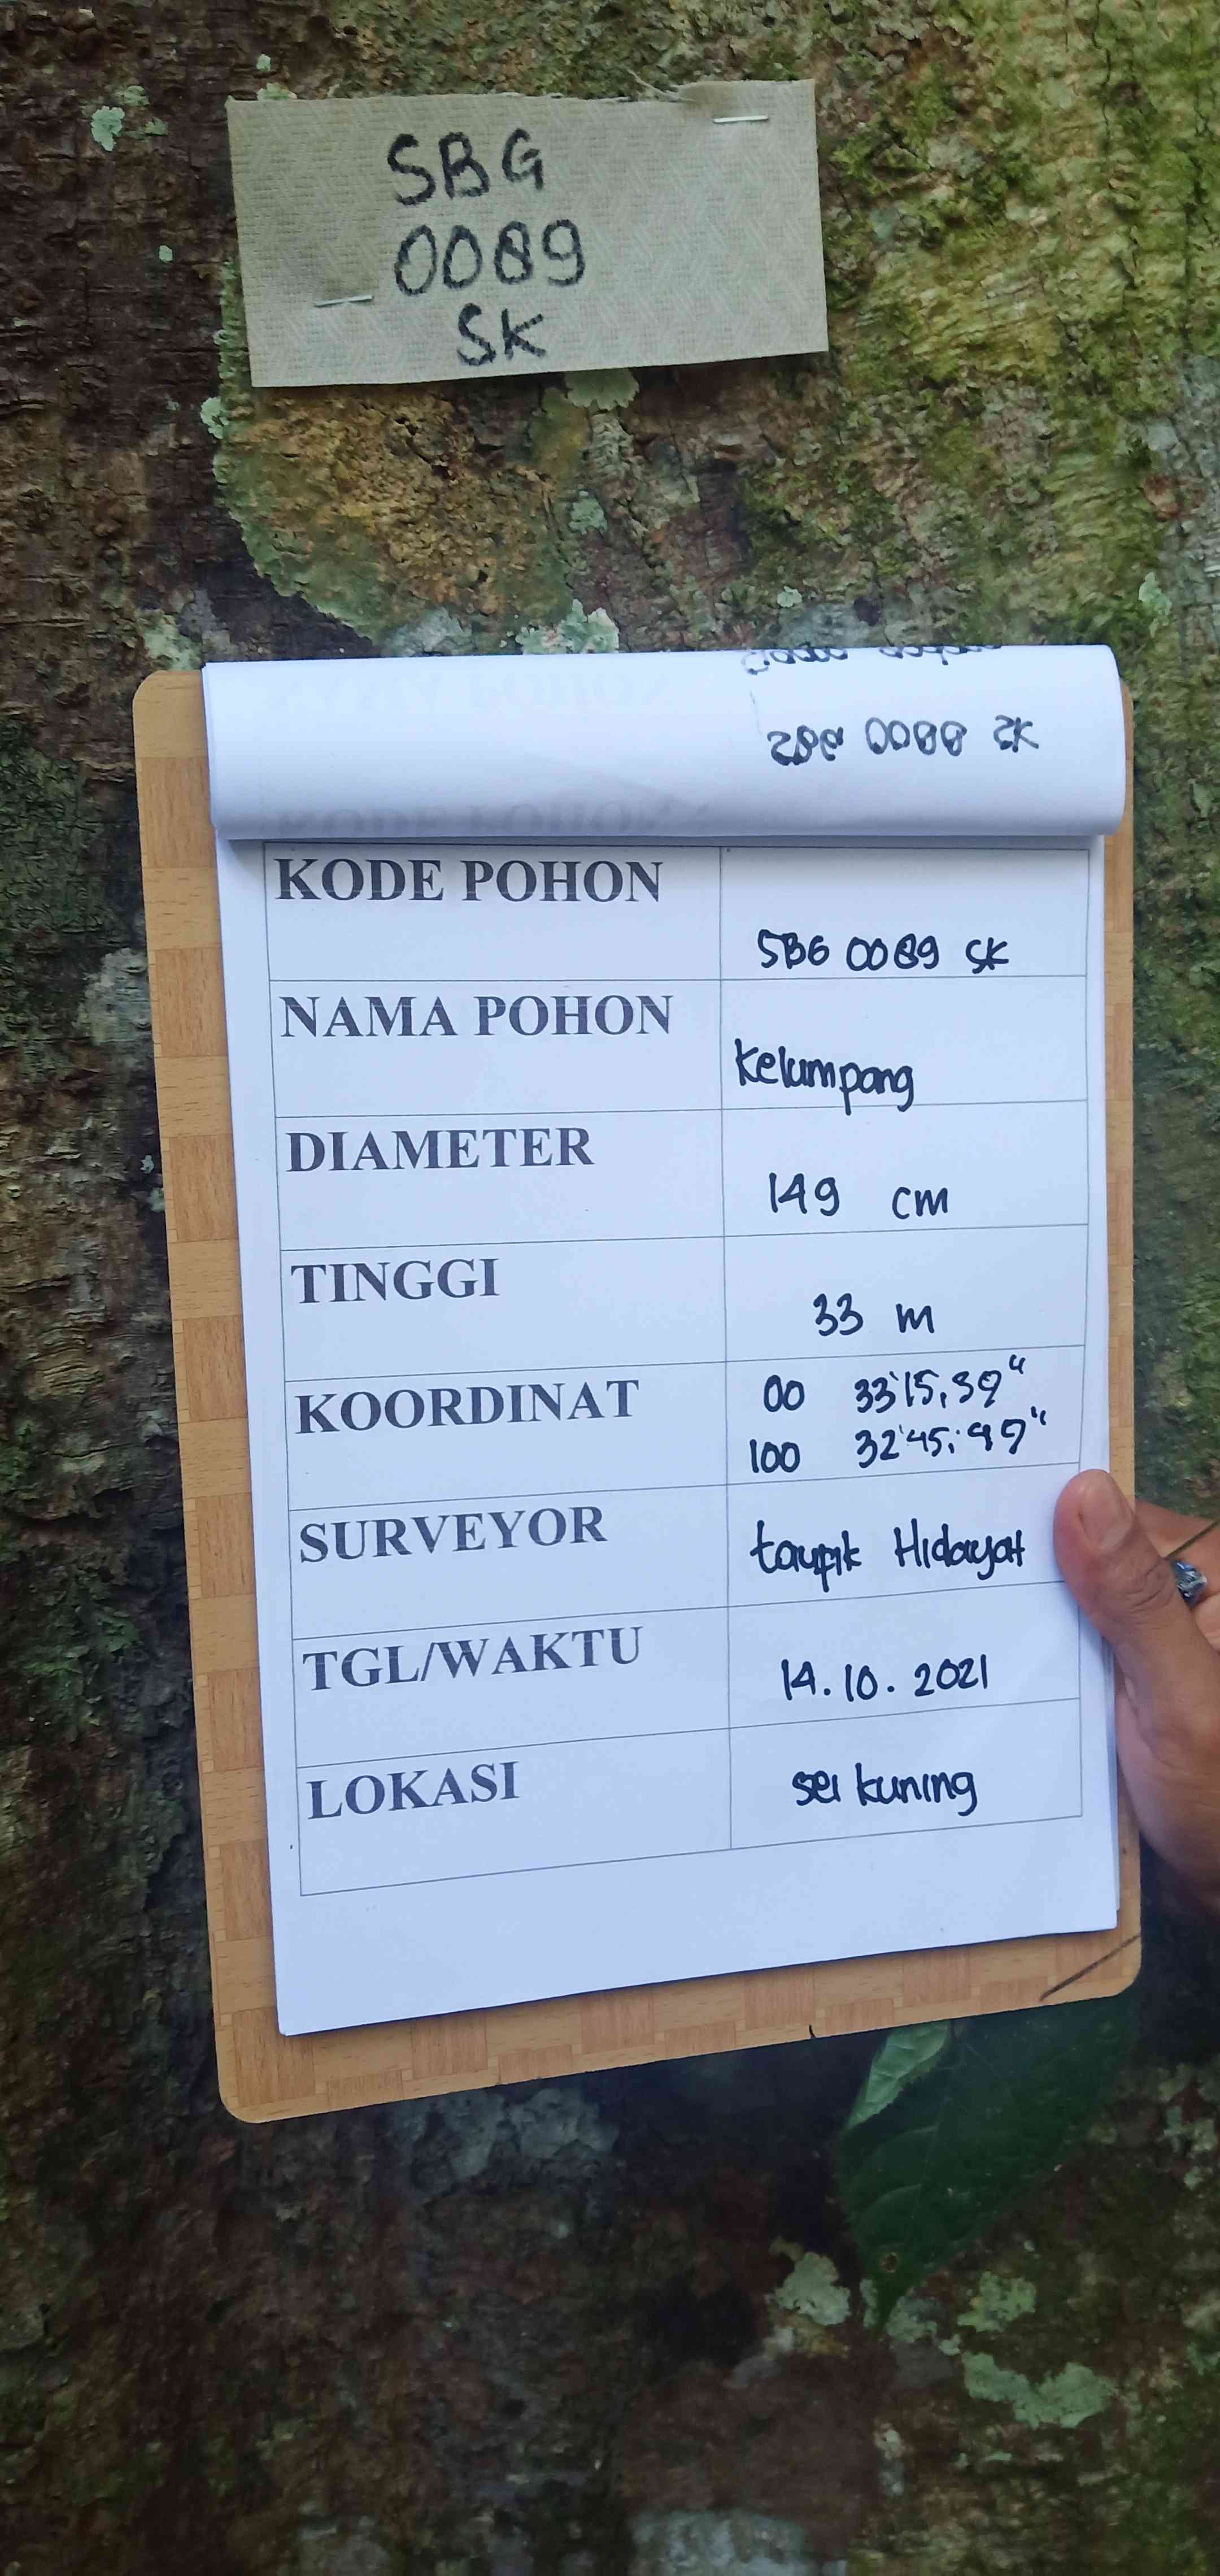 SBG
0089
SK
SBG 0088 SK
KODE POHON
SBG 0089 SK
NAMA POHON
Kelumpang
DIAMETER
149 cm
TINGGI
33 m
KOORDINAT
00 33'15,39"
100 32'45,99"
SURVEYOR
taupik Hidayat
TGL/WAKTU
14.10.2021
LOKASI
sei kuning